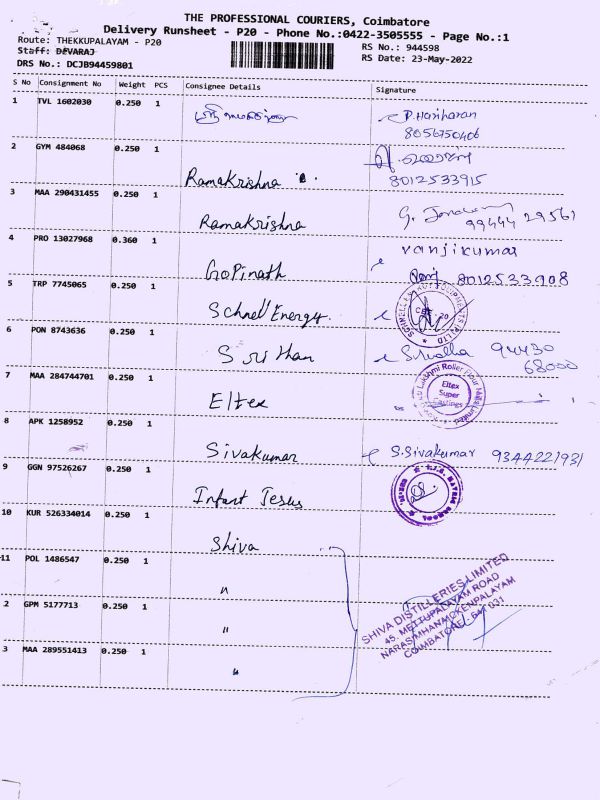 THE PROFESSIONAL COURIERS, Coimbatore
Delivery Runsheet - P20 - Phone No.:0422-3505555 - Page No.:1
Route: THEKKUPALAYAM - P20
RS No.: 944598
Staff: DEVARAJ
RS Date: 23-May-2022
DRS No.: DCJB94459801
S No Consignment No Weight PCS Consignee Details Signature
1 TVL 1602030 0.250 1 P.Hariharan
8056750406
2 GYM 484068 0.250 1 Ramakrishna
8012533915
3 MAA 290431455 0.250 1 Ramakrishna G.
99444 29561
4 PRO 13027968 0.360 1 Gopinath vanjikumar
8012533908
5 TRP 7745065 0.250 1 Schnel Energy.
6 PON 8743636 0.250 1 94430
68000
7 MAA 284744701 0.250 1 Eltex Eltex
Super
Castings
8 APK 1258952 0.250 1 Sivakumar S.Sivakumar 9344221931
9 GGN 97526267 0.250 1 Infant Jesus
10 KUR 526334014 0.250 1 Shiva
11 POL 1486547 0.250 1 "
2 GPM 5177713 0.250 1 "
3 MAA 289551413 0.250 1 "
SHIVA DISTILLERIES LIMITED
45, METTUPALAYAM ROAD
NARASIMHANAICKENPALAYAM
COIMBATORE - 641 031